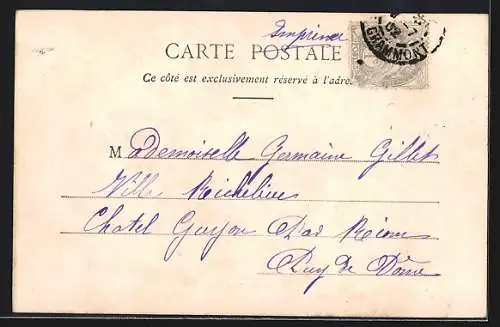 Imprimé
CARTE POSTALE
Ce côté est exclusivement réservé à l'adre
GRAMMONT
Mademoiselle Germaine Gillet
Villa Richelieu
Chatel Guyon Par Riom
Puy de Dôme